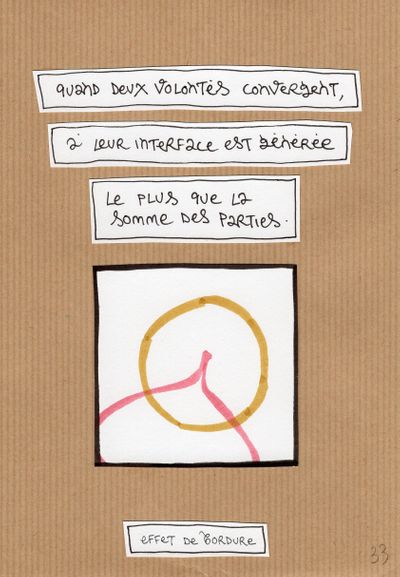 quand deux volontés convergent,
à leur interface est générée
le plus que la
somme des parties.
effet de bordure
33